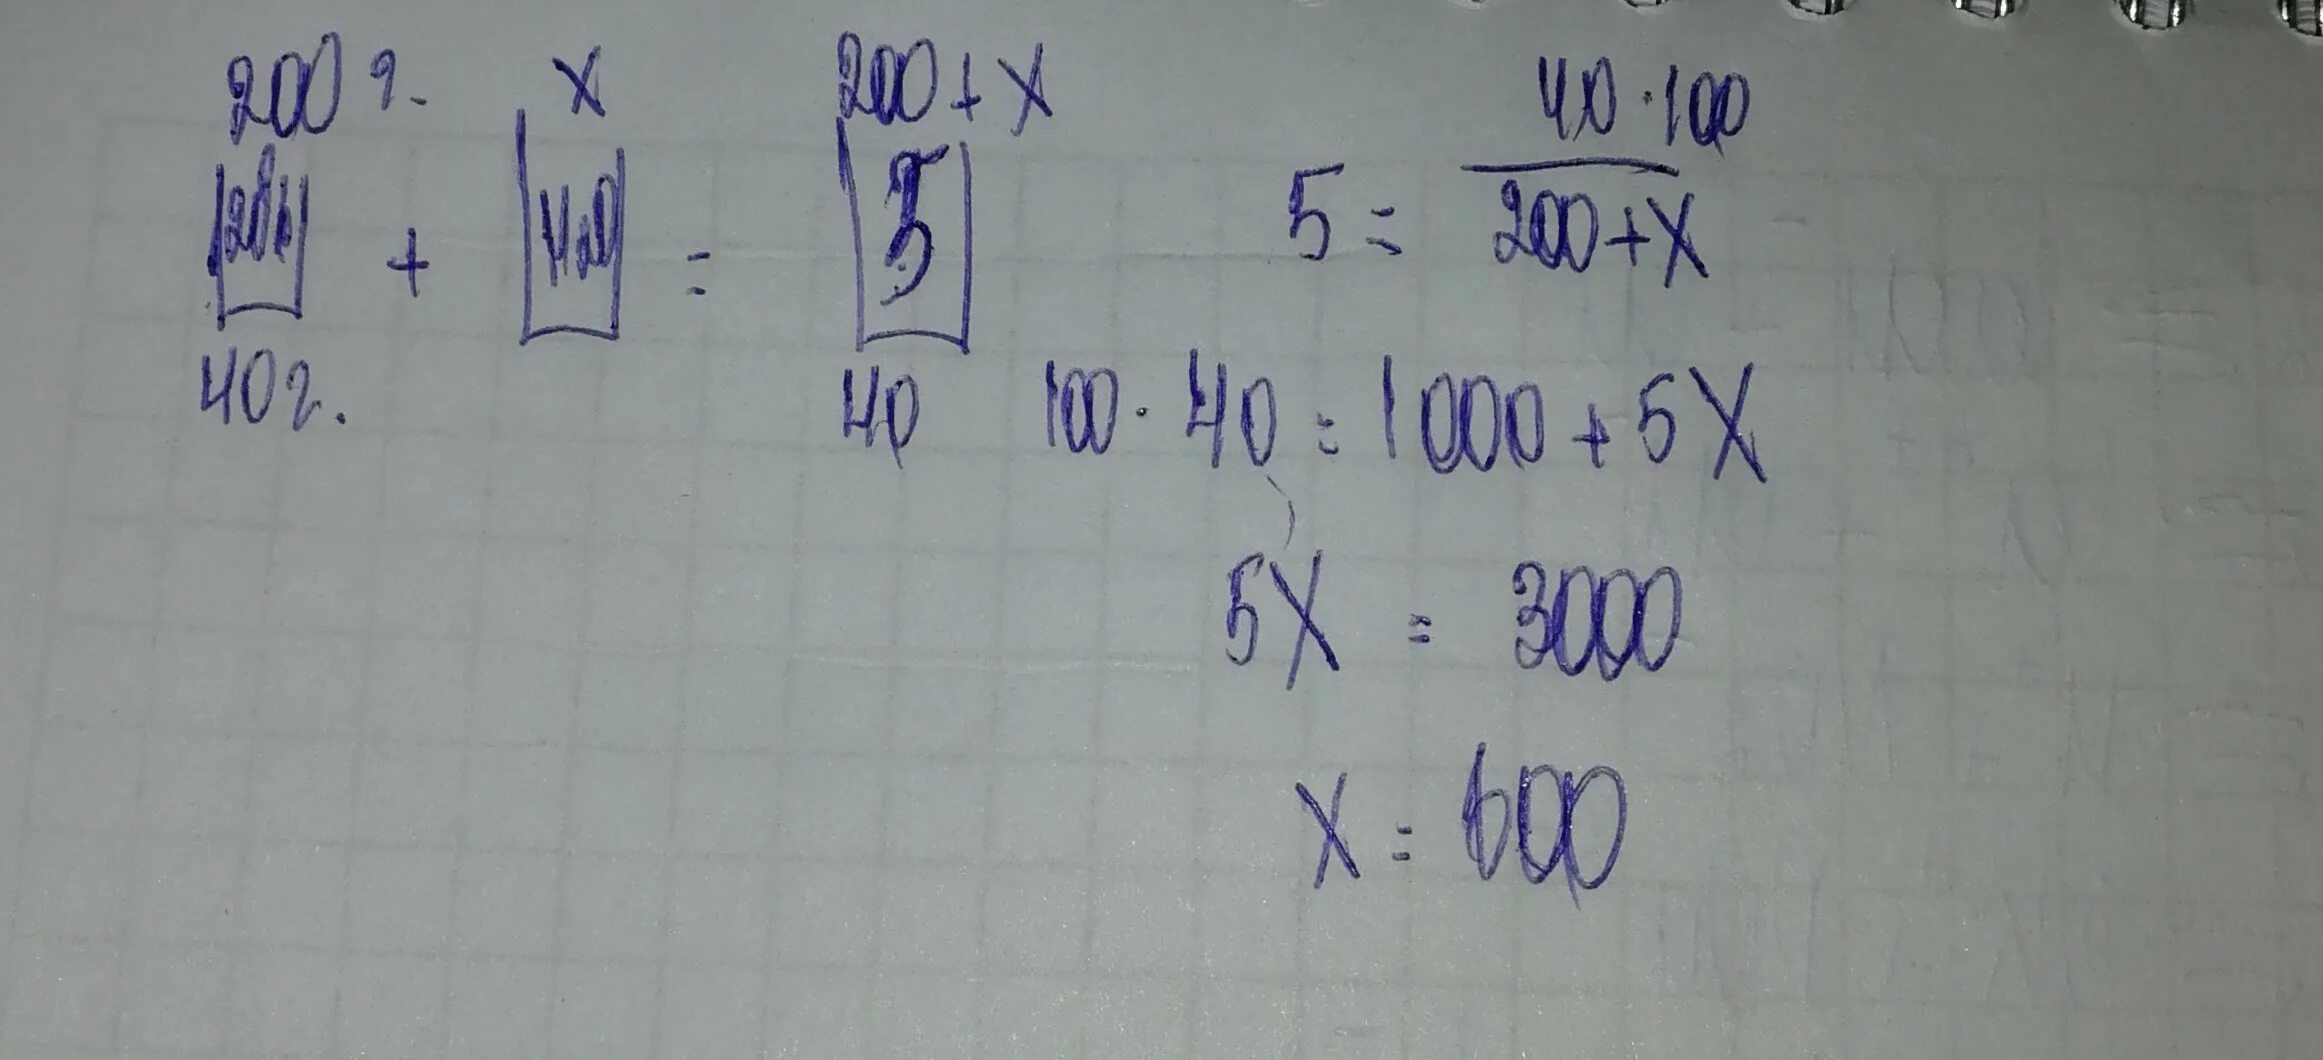 200 г. x 200 + x
20% + H₂O = 5
40 г. 40
5 = 40 · 100 / 200 + x
100 · 40 = 1000 + 5x
5x = 3000
x = 600